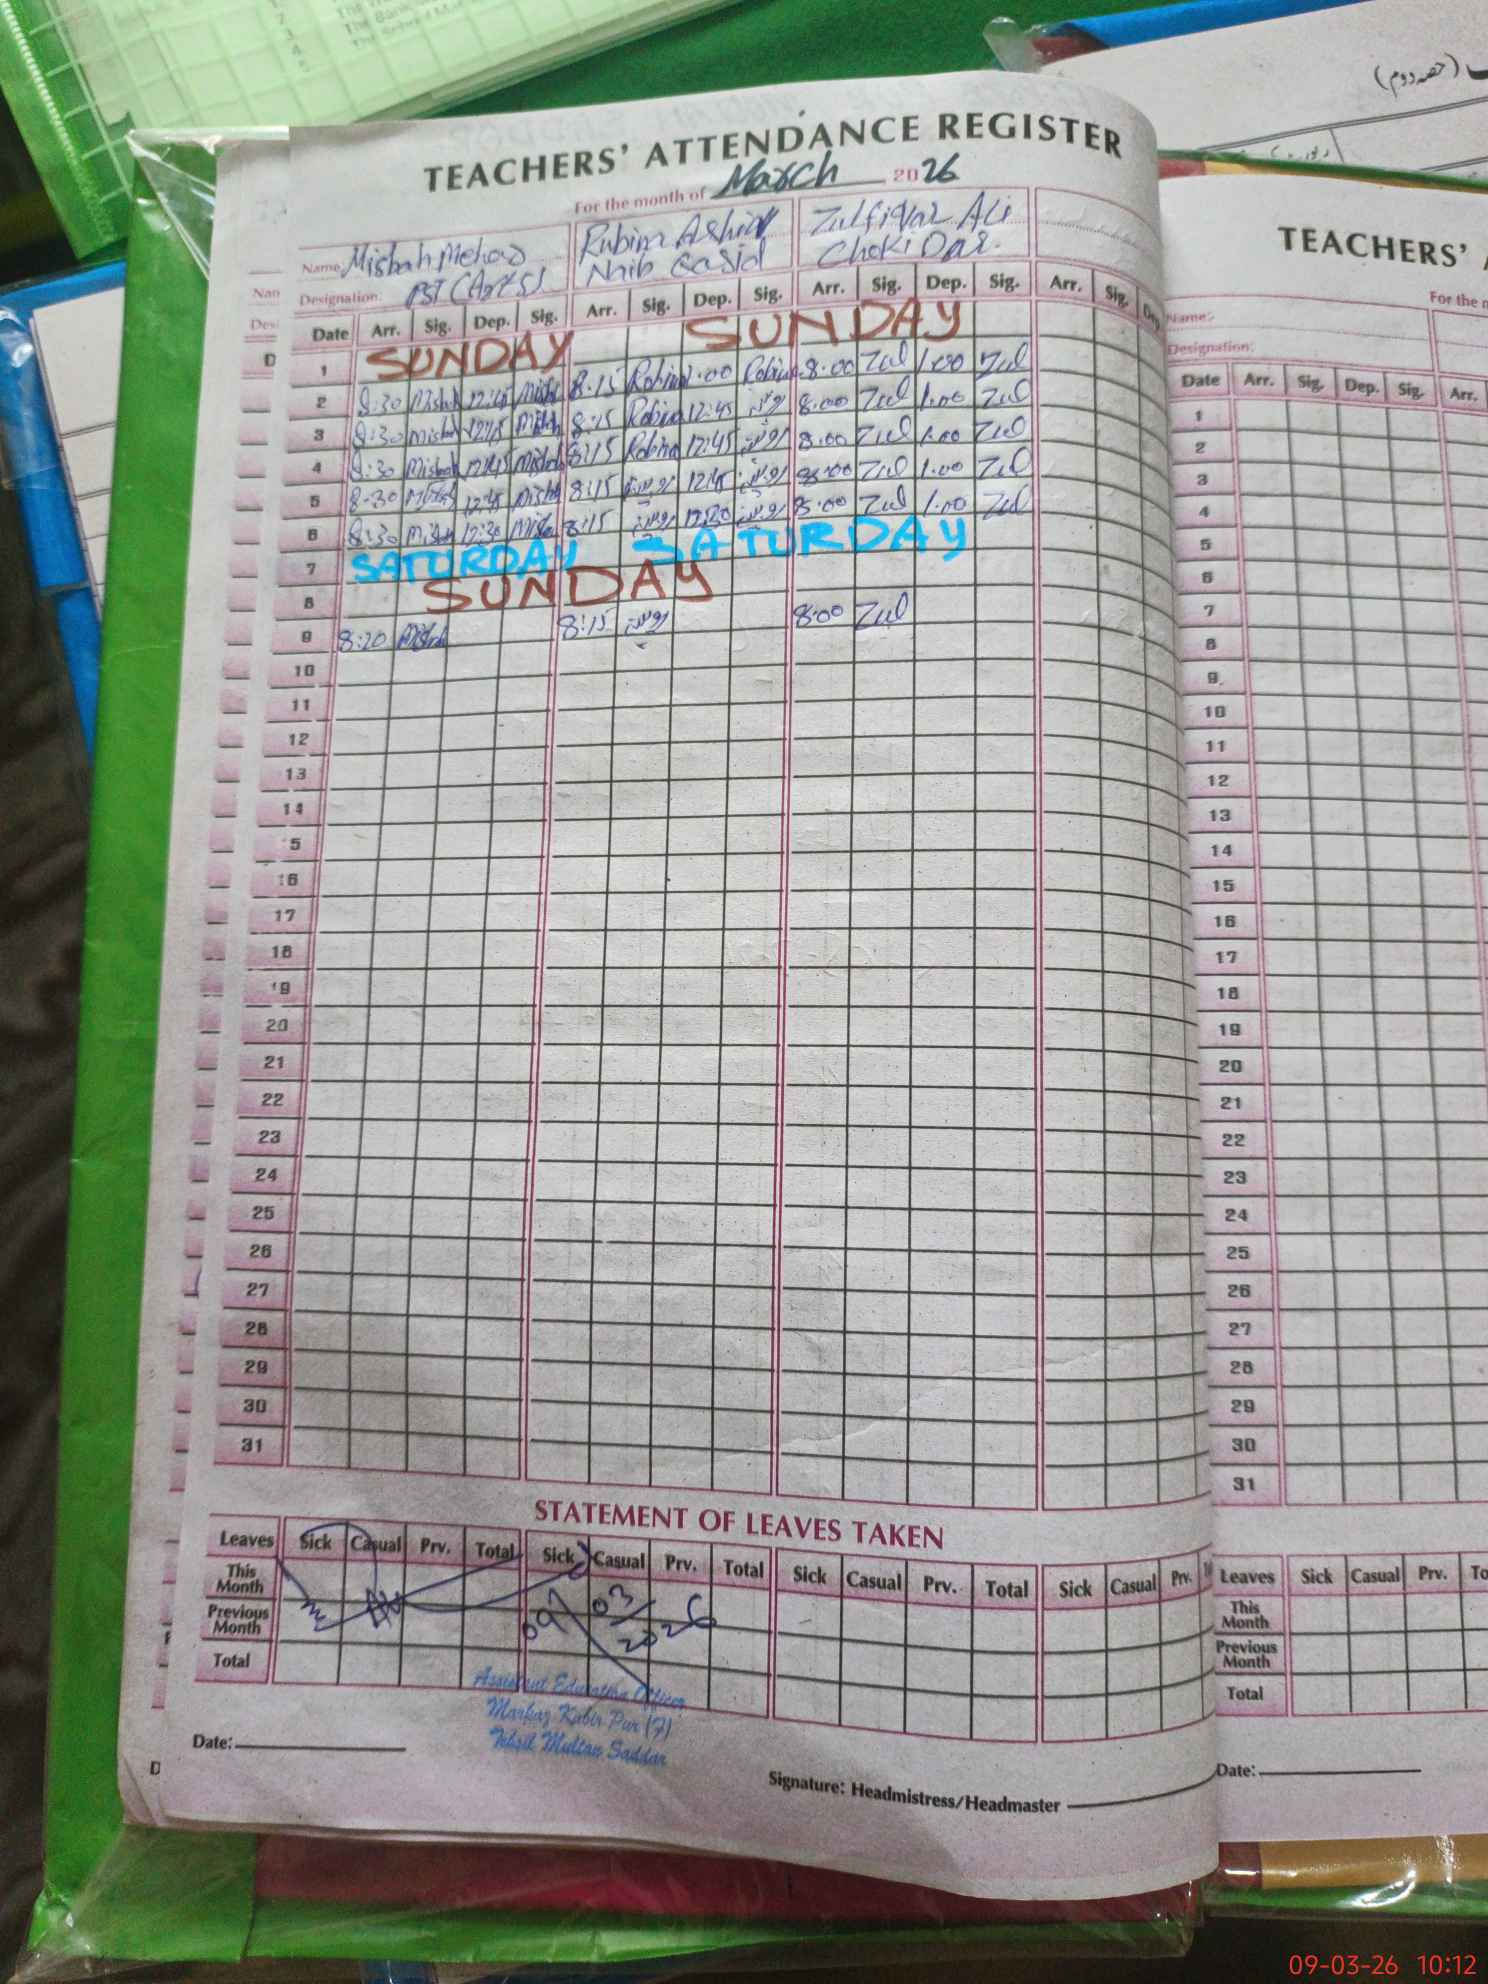 TEACHERS' ATTENDANCE REGISTER
For the month of March 2026
Name: Misbah Mehar Rubina Ashiq Zulfiqar Ali
Designation: PST (Arts) Naib Qasid Choki Dar.
Date Arr. Sig. Dep. Sig. Arr. Sig. Dep. Sig. Arr. Sig. Dep. Sig. Arr. Sig. Dep.
1 SUNDAY SUNDAY
2 8:30 Misbah 12:45 Misbah 8:15 Robina 1:00 Robina 8:00 Zul 1:00 Zul
3 8:30 Misbah 12:45 Misbah 8:15 Robina 12:45 روبینہ 8:00 Zul 1:00 Zul
4 8:30 Misbah 12:45 Misbah 8:15 Robina 12:45 روبینہ 8:00 Zul 1:00 Zul
5 8:30 Misbah 12:45 Misbah 8:15 روبینہ 12:45 روبینہ 8:00 Zul 1:00 Zul
6 8:30 Misbah 12:30 Misbah 8:15 روبینہ 12:30 روبینہ 8:00 Zul 1:00 Zul
7 SATURDAY SATURDAY
8 SUNDAY
9 8:20 Misbah 8:15 روبینہ 8:00 Zul
10
11
12
13
14
15
16
17
18
19
20
21
22
23
24
25
26
27
28
29
30
31
STATEMENT OF LEAVES TAKEN
Leaves Sick Casual Prv. Total Sick Casual Prv. Total Sick Casual Prv. Total Sick Casual Prv.
This Month
Previous Month
Total
09/03/2026
Assistant Education Officer
Markaz Kabir Pur (F)
Tehsil Multan Saddar
Date:
Signature: Headmistress/Headmaster
TEACHERS'
For the
Name:
Designation:
Date Arr. Sig. Dep. Sig. Arr.
1
2
3
4
5
6
7
8
9
10
11
12
13
14
15
16
17
18
19
20
21
22
23
24
25
26
27
28
29
30
31
Leaves Sick Casual Prv.
This Month
Previous Month
Total
Date:
(حصہ دوم)
09-03-26 10:12